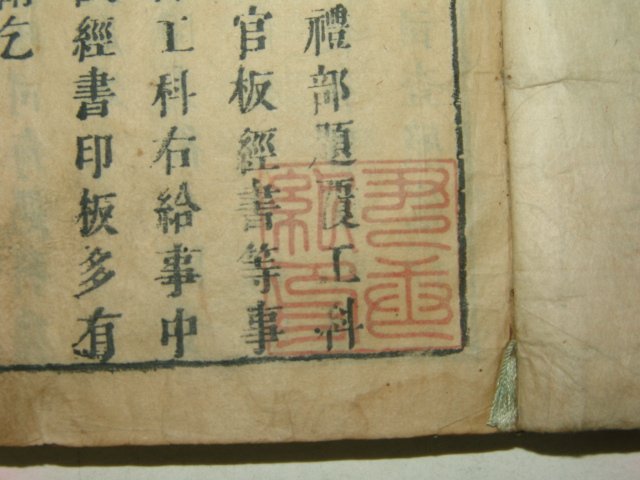 禮部題覆工科
官板經書等事
工科右給事中
經書印板多有
乞